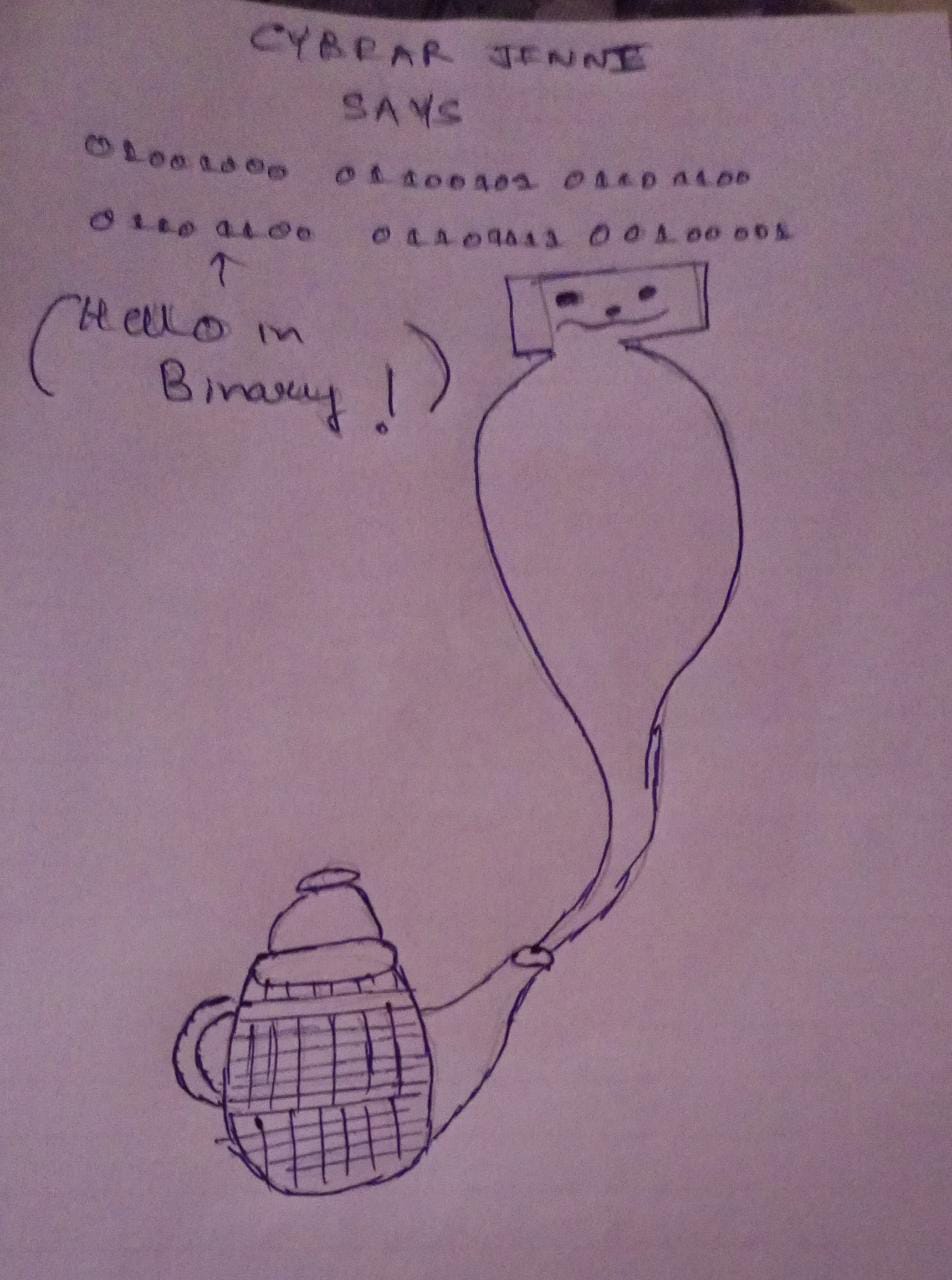 CYBRAR JENNI
SAYS
01001000 01100101 01101100
01101100 01101111 00100001
(Hello in
Binary!)